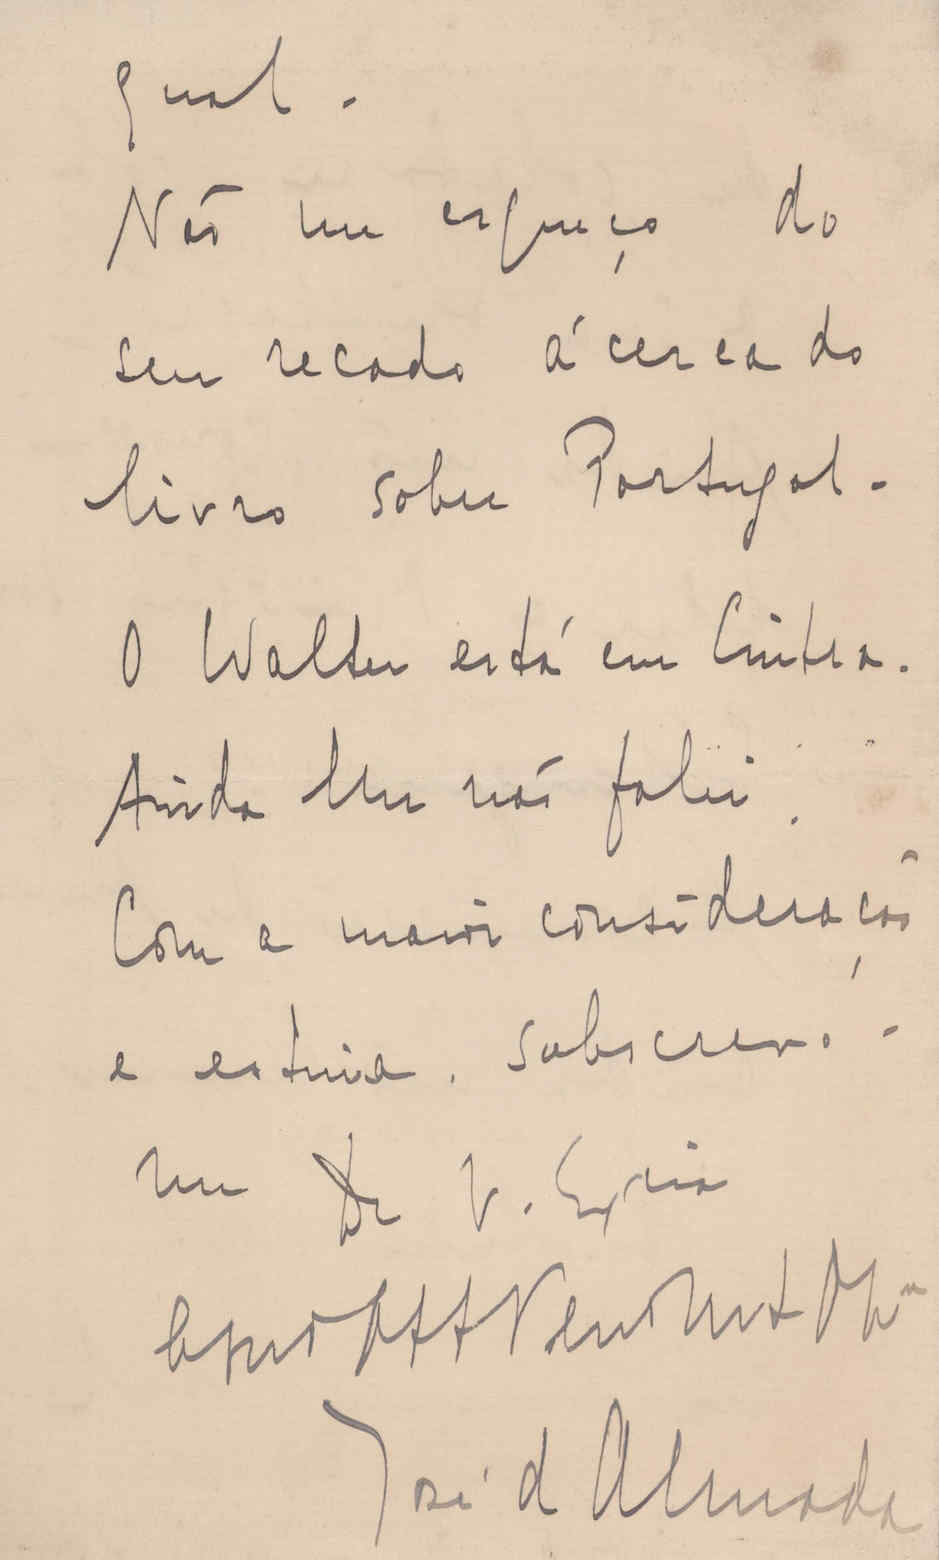 qual.
Não me esqueço do
seu recado ácerca do
livro sobre Portugal.
O Walter está em Cintra.
Ainda lhe não falei.
Com a maior consideração
e estima, subscrevo-
me De V. Exia
José d'Almada